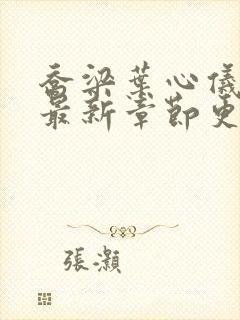 喬梁葉心儀
最新章節更
張灝